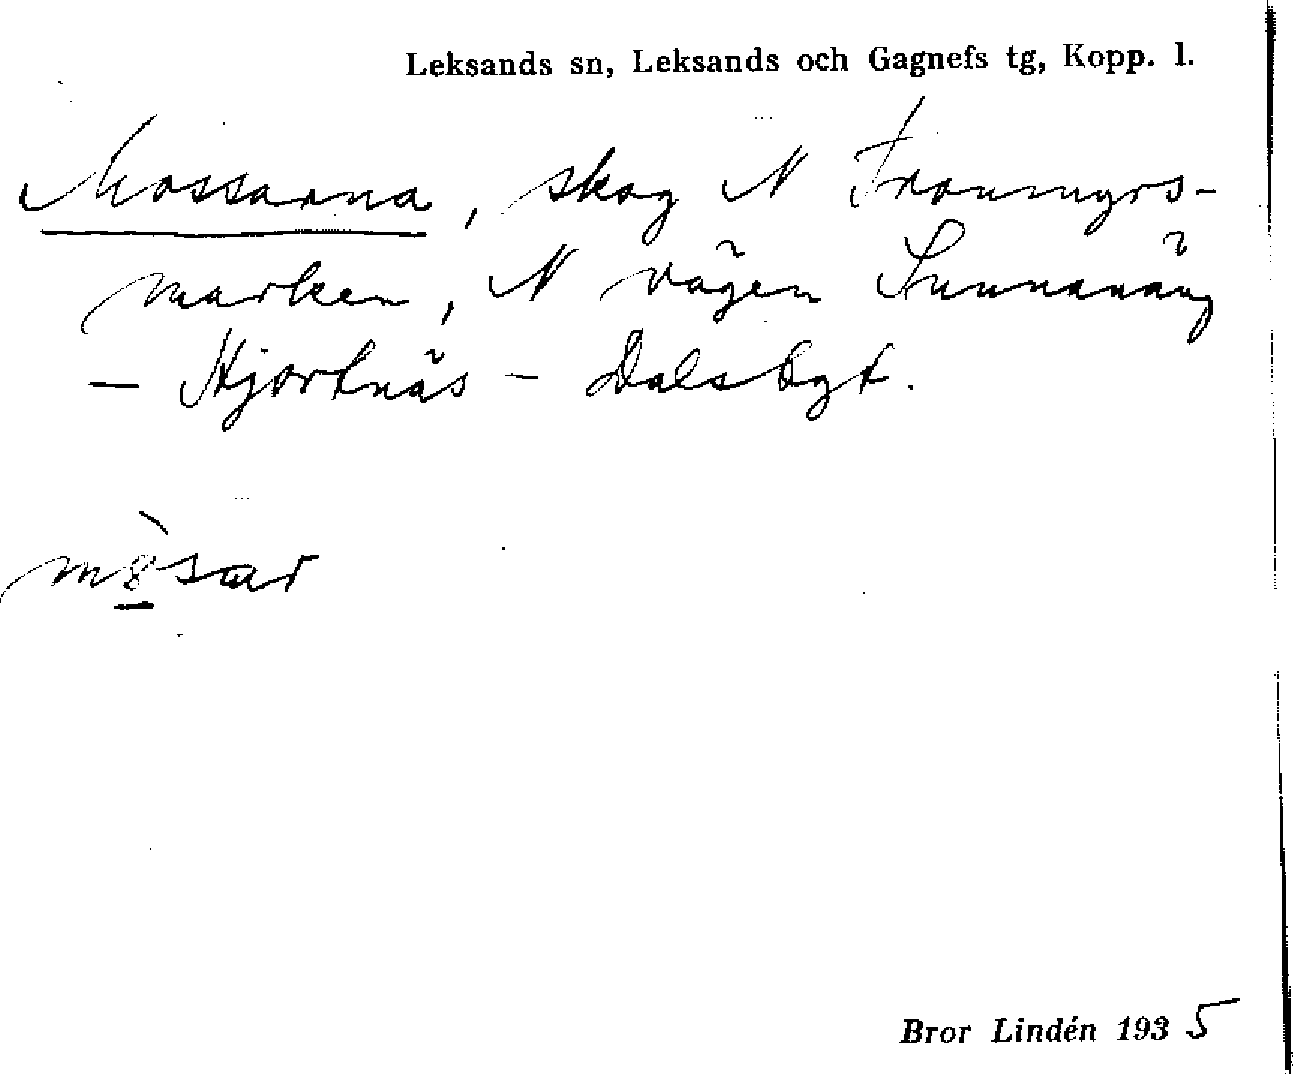 Leksands sn, Leksands och Gagnefs tg, Kopp. l.
Mossarna, skog N Fronmyrs-
marken, N vägen Sunnanäng
– Hjortnäs – Dalsbygt.
m8sar
Bror Lindén 1935